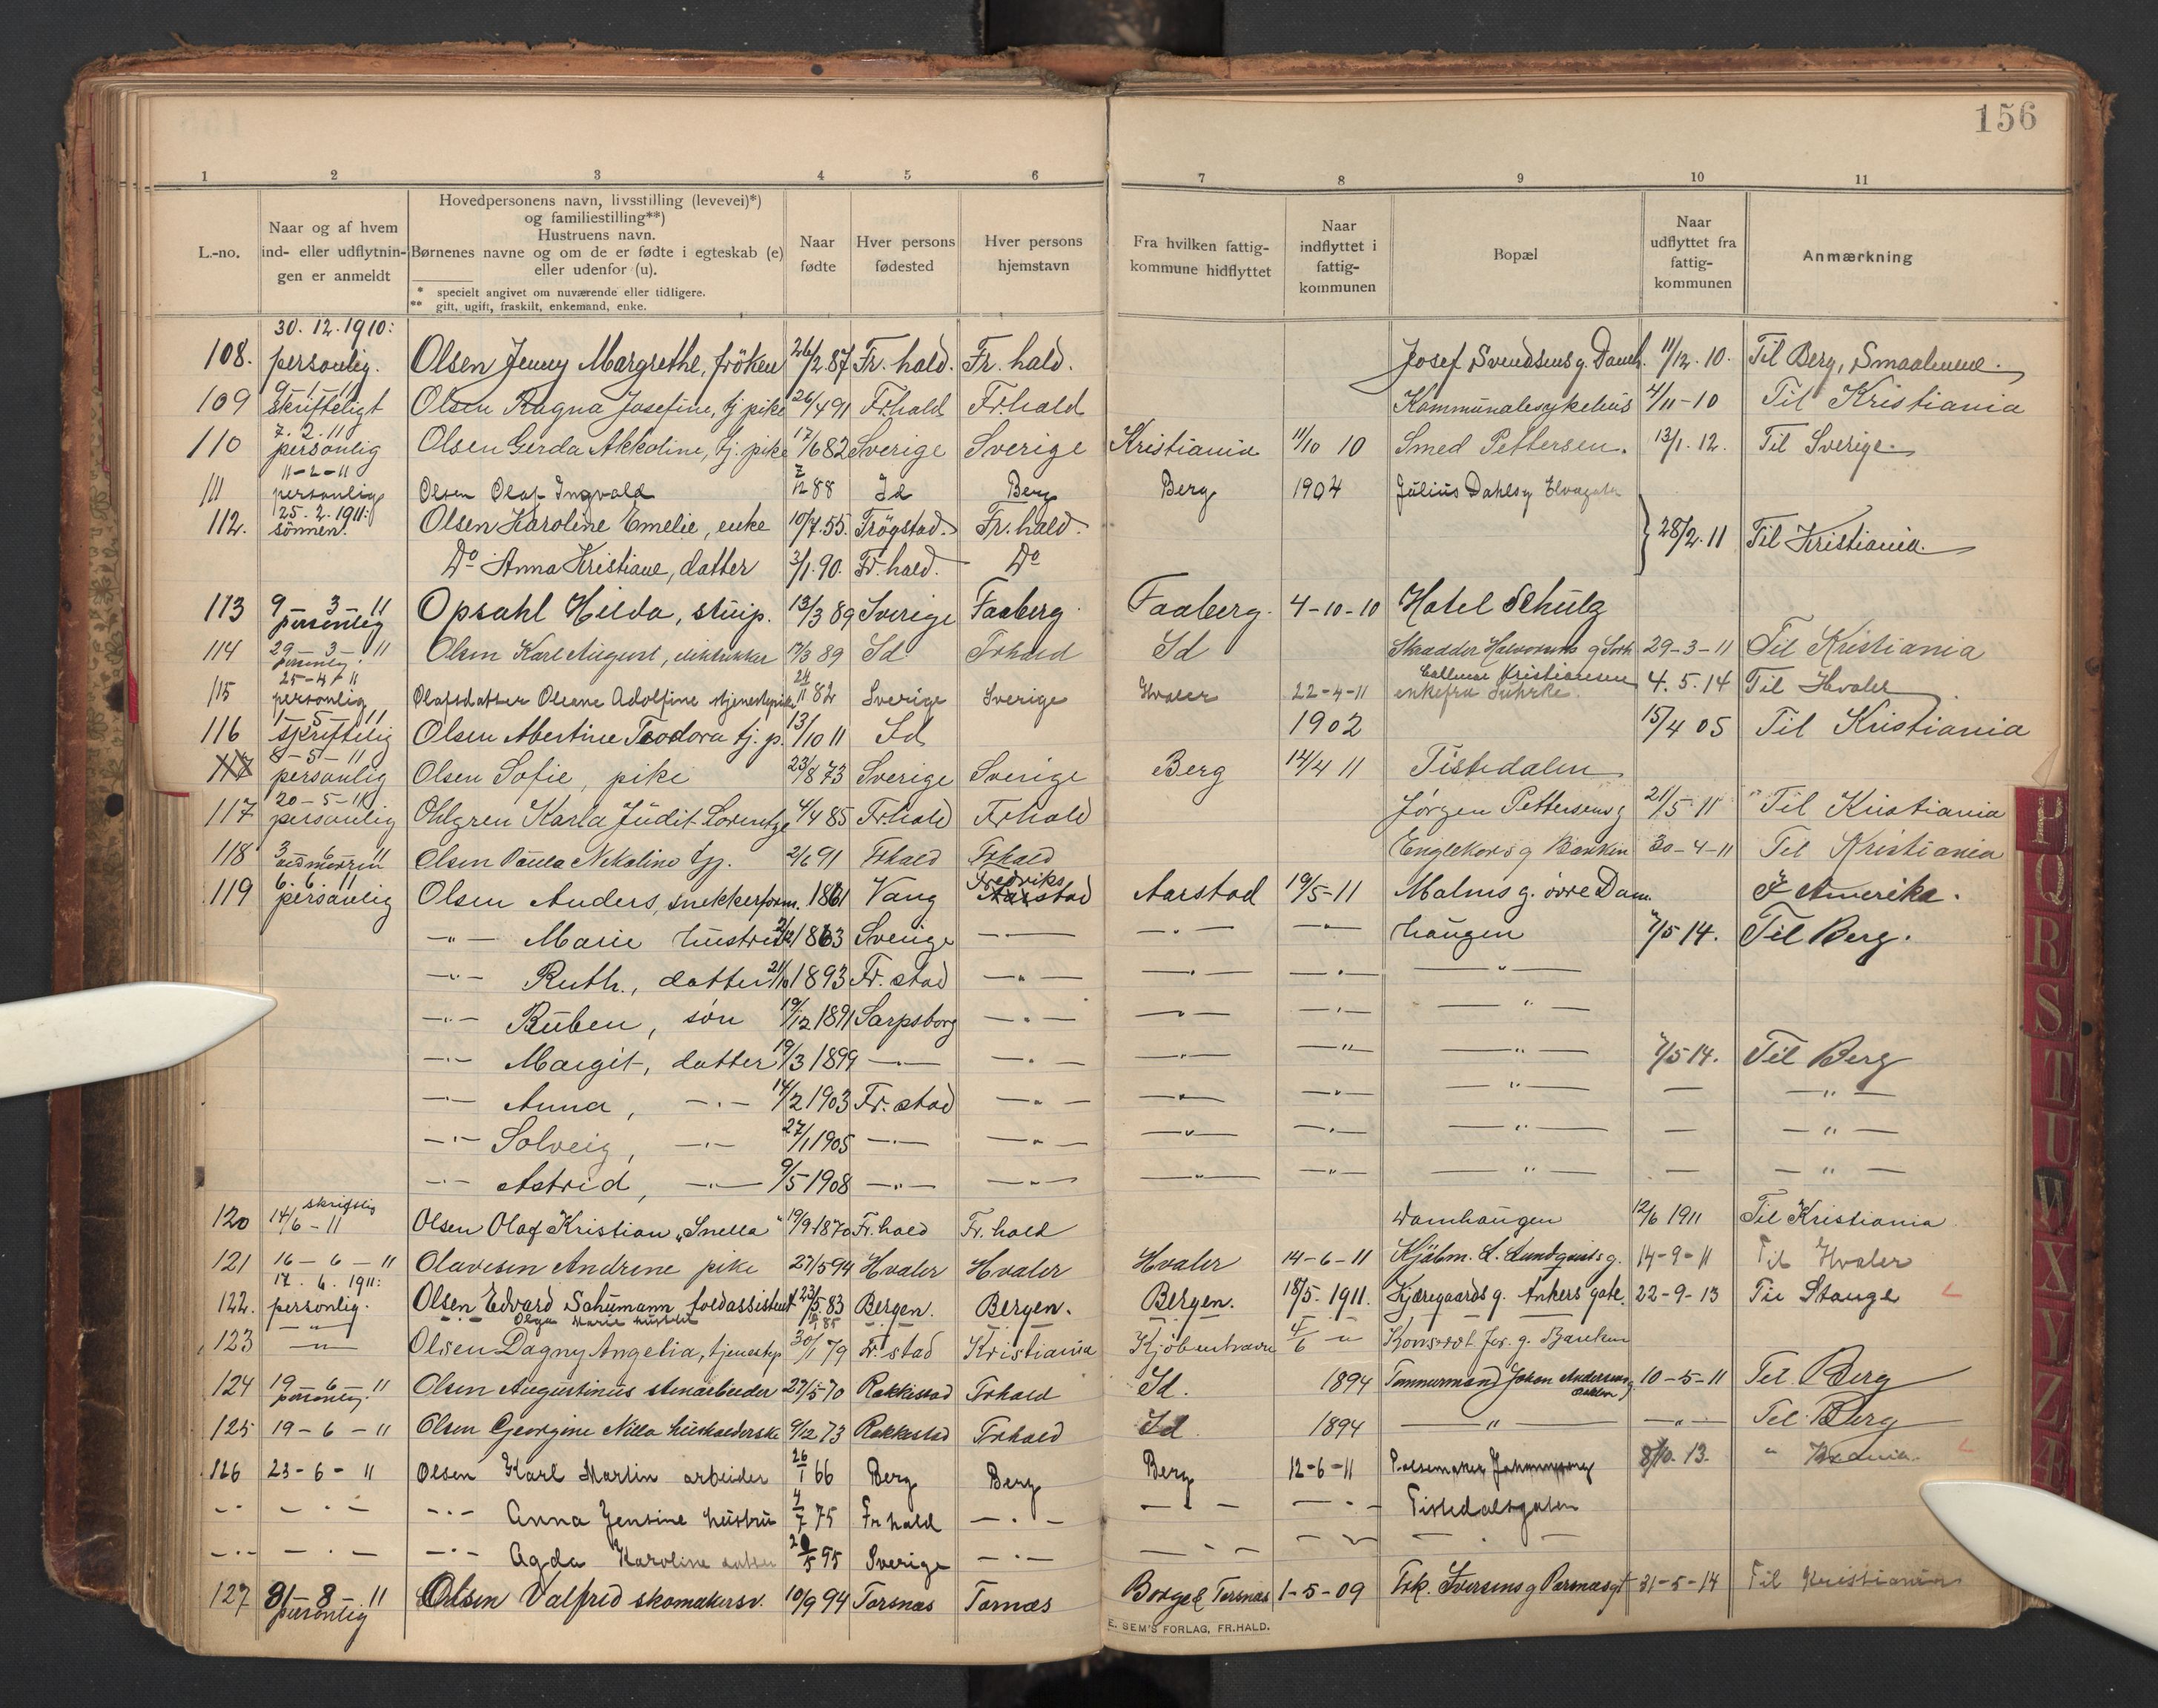 156
1 2 3 4 5 6 7 8 9 10 11
L.-no.
Naar og af hvem
ind- eller udflytnin-
gen er anmeldt
Hovedpersonens navn, livsstilling (levevei)*)
og familiestilling**)
Hustruens navn.
Børnenes navne og om de er fødte i egteskab (e)
eller udenfor (u).
* specielt angivet om nuværende eller tidligere.
** gift, ugift, fraskilt, enkemand, enke.
Naar
fødte
Hver persons
fødested
Hver persons
hjemstavn
Fra hvilken fattig-
kommune hidflyttet
Naar
indflyttet i
fattig-
kommunen
Bopæl
Naar
udflyttet fra
fattig-
kommunen
Anmærkning
30. 12. 1910:
108. personlig. Olsen Jenny Margrethe, fröken 26/2.87 Fr. hald. Fr. hald. Josef Svendsens g. Damh. 11/12. 10. Til Berg, Smaalenene.
9-1-11
109 skrifteligt Olsen Ragna Josefine, tj pike 26/4 91 Fr.hald Fr.hald Kommunalesykehus 4/11-10 Til Kristiania
7. 2. 11
110 personlig Olsen Gerda Akkoline, tj. pike 17/6 82 Sverige Sverige Kristiania 11/10 10 Smed Pettersen. 13/1. 12. Til Sverige
11-2-11
111 personlig Olsen Olaf Ingvald 7/12 88 Id Berg Berg 1904 Julius Dahls g Elvegata
25. 2. 1911:
112. sönnen. Olsen Karoline Emelie, enke 10/7.55. Trögstad. Fr. hald. 28/2. 11 Til Kristiania.
Do Anna Kristiane, datter 3/1. 90. Fr. hald. Do
113 9-3-11 Opsahl Hilda, stuip. 13/3 89 Sverige Faaberg Faaberg. 4-10-10 Hotel Schulz
personlig
114 29-3-11 Olsen Karl August, 17/3 89 Id Frhald Id Skrædder Halvorsens g 29-3-11 Til Kristiania
personlig.
25-4-11 Kristiansen
115 personlig Olafsdatter Oleane Adolfine tjenestepike 24/11 82 Sverige Sverige Hvaler 22-4-11 enkefru Suhrke. 4. 5. 14 Til Hvaler
1-5-11
116 skriftelig Olsen Abertine Teodora tj. p. 13/10 11 Id 1902 15/4 05 Til Kristiania
8-5-11
117 personlig Olsen Sofie, pike 23/8 73 Sverige Sverige Berg 12/4 11 Tistedalen
20-5-11
117 personlig Ohlgren Karla Judit Lorentze 4/4 85 Frhald Frhald Jörgen Pettersens g 21/5-11 " Til Kristiania
118 3-6-11 Olsen Paula Nekoline tjp. 2/6 91 Frhald Frhald Englekors g Banken 30-4-11 Til Kristiania
ved moren
6. 6. 11 Fredriks
119 personlig Olsen Anders, snekkerform. 1861 Vang Aarstad Aarstad 19/5-11 Malms g. övre Dam F Amerika.
-"- Marie hustru 21/2 1863 Sverige -"- -"- -"- haugen 7/5 14. Til Berg.
-"- Ruth., datter 21/10 1893 Fr. stad -"- -"- -"- -"-
-"- Ruben, sön 19/12 1891 Sarpsborg -"- -"- -"- -"-
-"- Margit, datter 19/3 1899 -"- -"- -"- -"- -"- 7/5 14. Til Berg
-"- Anna, -"- 14/2 1903 Fr. stad -"- -"- -"- -"- - -"-
-"- Solveig, -"- 27/1 1905 -"- -"- -"- -"- -"- - -"-
-"- Astrid, -"- 9/5 1908 -"- -"- -"- -"- -"- - -"-
skriftlig
120 14/6-11 Olsen Olaf Kristian "Snella" 19/9 1870 Fr. hald Fr. hald Damhaugen 12/6 1911 Til Kristiania
121 16-6-11 Olavesen Andrine pike 27/5 94 Hvaler Hvaler Hvaler 14-6-11 Kjöbm. L. Lundqvists g. 14-9-11 Til Hvaler
17. 6. 1911:
122. personlig. Olsen Edvard Schumann toldassistent 23/5 83 Bergen. Bergen. Bergen. 18/5. 1911. Kjæregaards g. Ankers gate. 22-9-13 Til Stange
-"- Olga Marie hustru 85 -"- -"- -"-
123 -"- Olsen Dagny Angelia, tjenestep 30/1 79 Fr. stad Kristiania Kjöbenhavn 4/6 -"- g. Banken
124 19-6-11 Olsen Augustinus stenarbeider 27/5 70 Rakkestad Frhald Id. 1894 Tømmermand Johan Andersens g 10-5-11 Til Berg
personlig.
125 19-6-11 Olsen Georgine Nilla husholderske 9/12 73 Rakkestad Frhald Id 1894 -"- -"- Til Berg
126 23-6-11 Olsen Karl Martin arbeider 26/1 66 Berg Berg Berg 12-6-11 Pølsemaker 8/10. 13. " Kr.ania.
-"- -"- -"- Anna Jensine hustru 4/7 75 Fr hald -"- -"- -"- Tistedalsgaten
-"- -"- -"- Agda Karoline datter 20/5 95 Sverige -"- -"- -"- -"-
127 31-8-11 Olsen Valfred skomakersv. 10/9 94 Torsnæs Tornæs Borge & Torsnæs 1-5-09 Frk. Iversens g 31-5-14 Til Kristiania
personlig
E. SEM'S FORLAG, FR.HALD.
P
Q
R
S
T
U
W
X
Y
Z
Æ